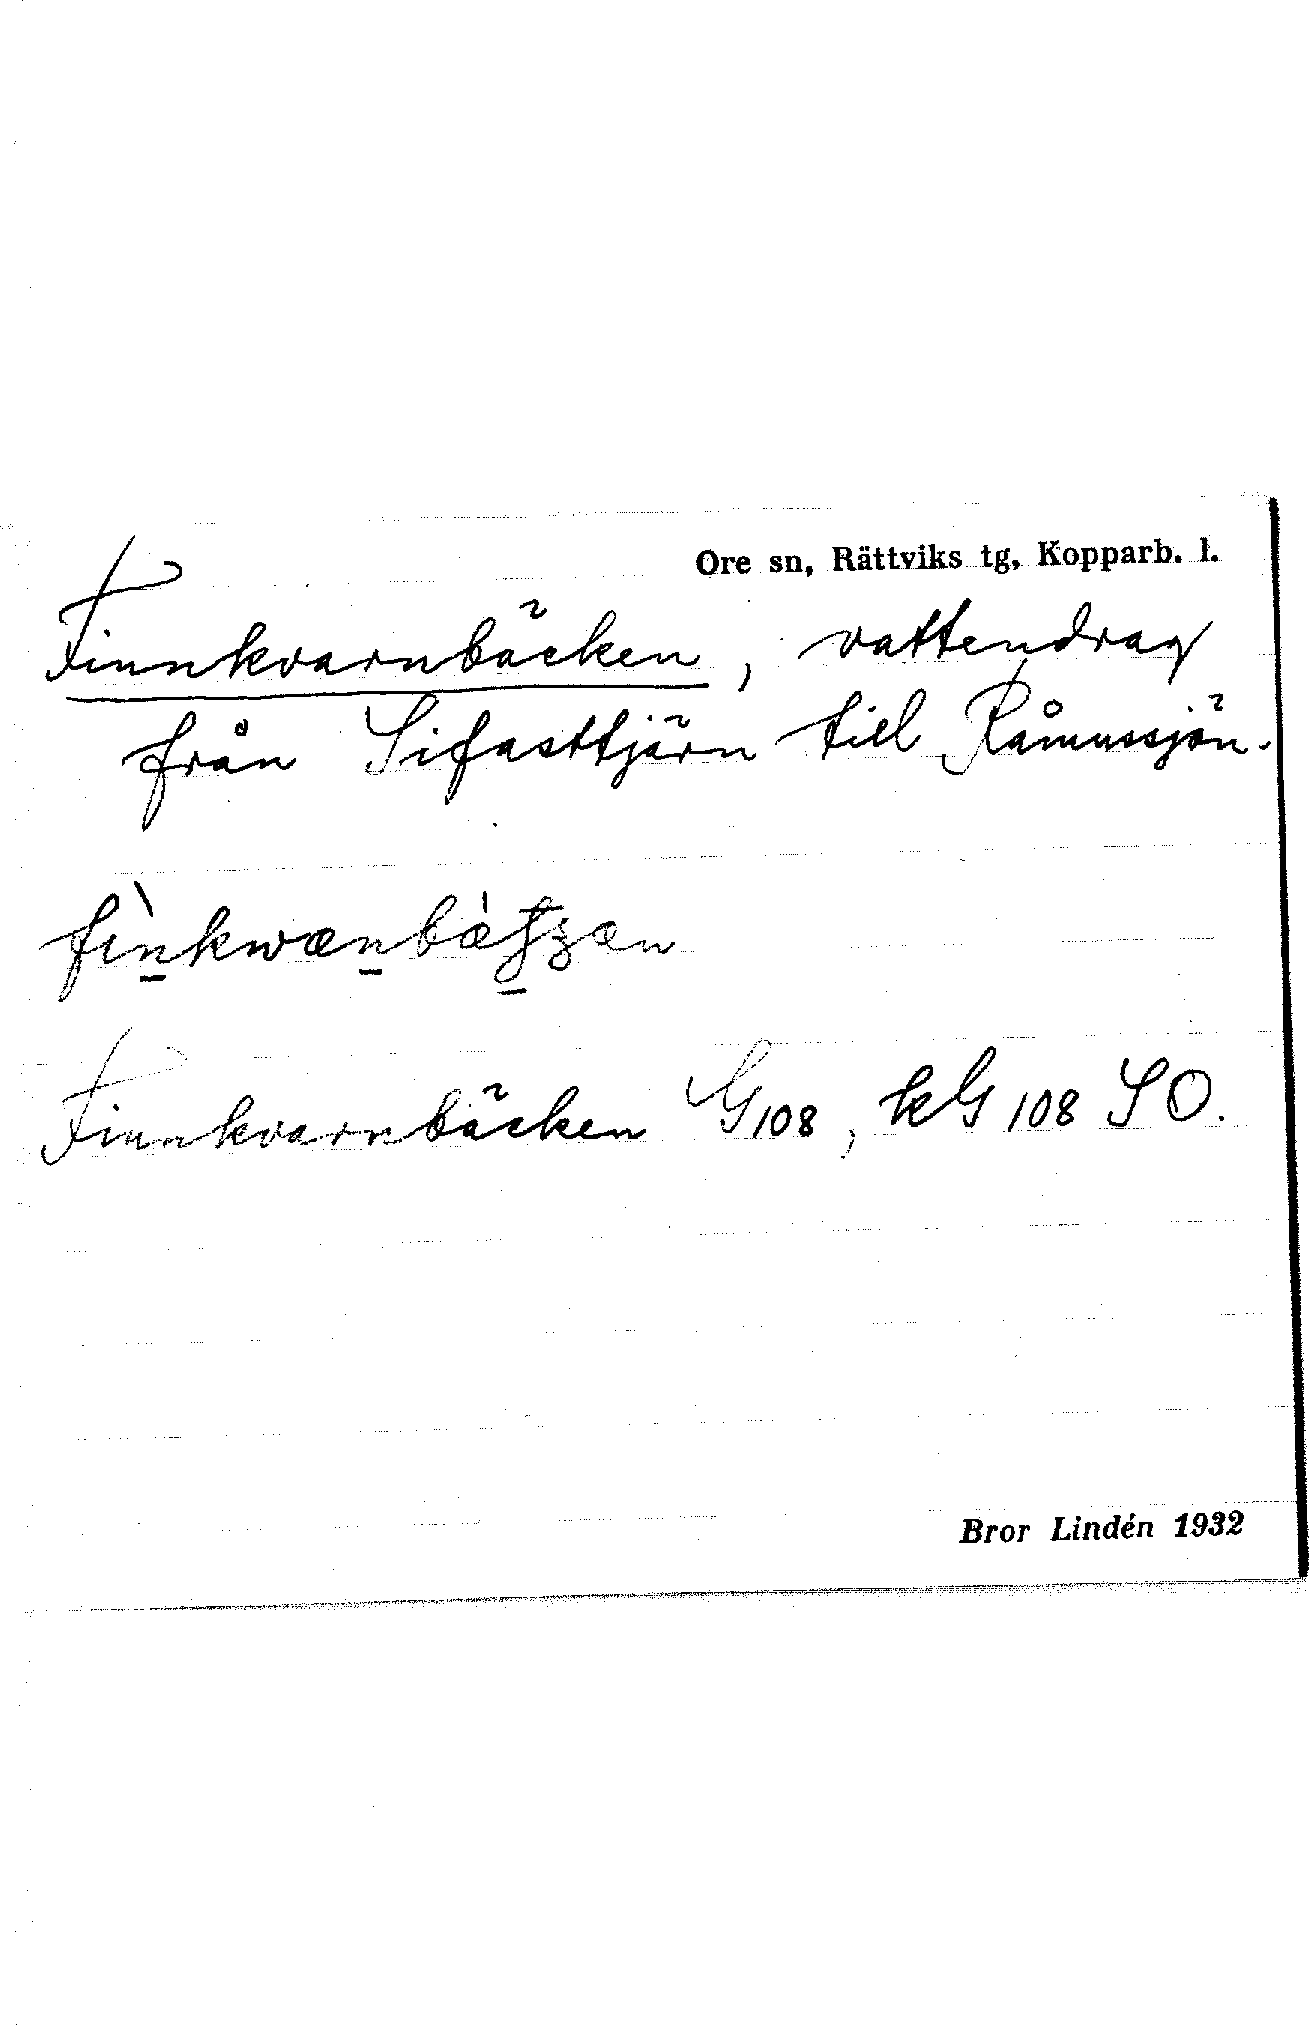 Ore sn, Rättviks tg, Kopparb. l.
Finnkvarnbäcken, vattendrag
från Sifasttjärn till Råmussjön.
Finnkvarnbäcken G108, kG 108 SO.
Bror Lindén 1932